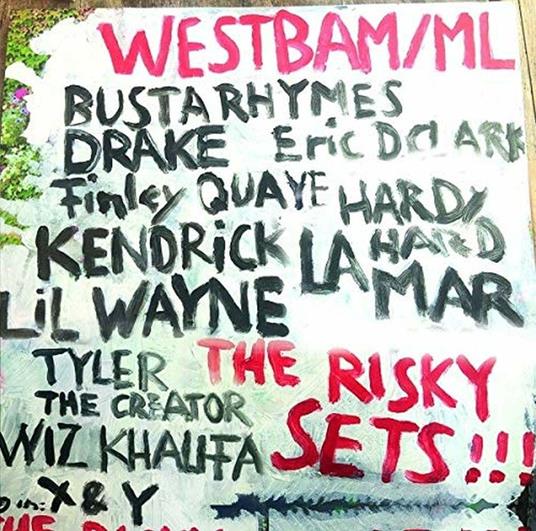 WESTBAM/ML
BUSTA RHYMES
DRAKE Eric D.ClARK
Finley QUAYE HARDY
HARD
KENDRiCK LA MAR
LiL WAYNE
TYLER THE RISKY
THE CREATOR SETS!!!
WIZ KHALIFA
X & Y